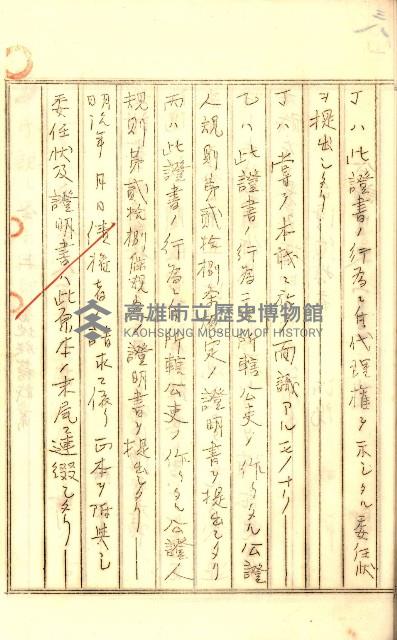 丁ハ此證書ノ行為ニ付代理權ヲ示シタル委任狀
ヲ提出シタリ
丁ハ當ノ本識ニテ面識アルモノナリ
乙ハ此證書ノ行為ニ付所轄公吏ノ作リタル公證
人規則第貳拾捌条規定ノ證明書ヲ提出シタリ
丙ハ此證書ノ行為ニ付所轄公吏ノ作リタル公證人
規則第貳拾捌條規定ノ證明書ヲ提出シタリ
明治年月日債權者ノ請求ニ依リ正本ヲ附與シ
委任狀及證明書ハ此原本ノ末尾ニ連綴シタリ
高雄市立歷史博物館
KAOHSIUNG MUSEUM OF HISTORY